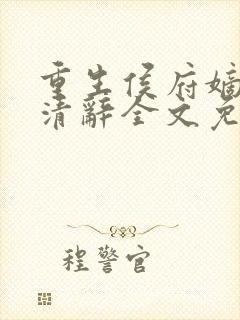 重生侯府嫡
清辞全文免
程警官